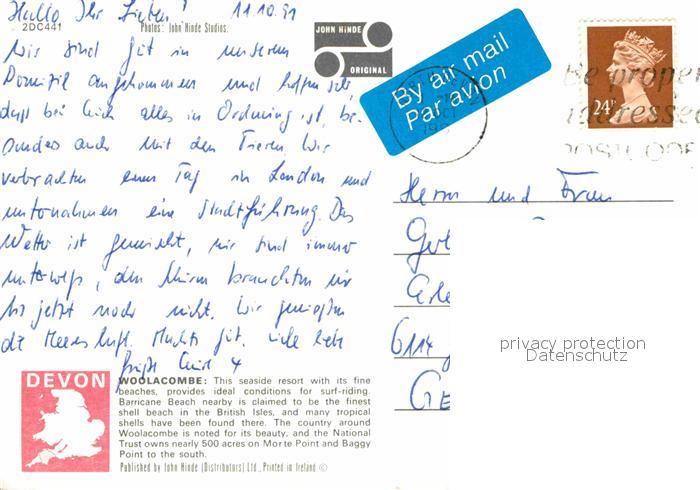 Hallo Ihr Lieben! 11.10.91
2DC441 Photos: John Hinde Studios.
JOHN HINDE
ORIGINAL
By air mail
Par avion
24P
Be proper
addressed
POSTCODE
Wir sind gut in unserem
Domizil angekommen und hoffen sehr,
dass bei Euch alles in Ordnung ist, be-
sonders auch mit den Tieren. Wir
verbrachten einen Tag in London und
unternahmen eine Stadtführung. Das
Wetter ist gemischt, wir sind immer
unterwegs, den Schirm brauchten wir
bis jetzt noch nicht. Wir genießen
die Meeresluft. Machts gut. Viele liebe
Grüße Eure 4
Herrn und Frau
6114
DEVON
WOOLACOMBE: This seaside resort with its fine
beaches, provides ideal conditions for surf-riding.
Barricane Beach nearby is claimed to be the finest
shell beach in the British Isles, and many tropical
shells have been found there. The country around
Woolacombe is noted for its beauty, and the National
Trust owns nearly 500 acres on Morte Point and Baggy
Point to the south.
Published by John Hinde (Distributors) Ltd., Printed in Ireland ©
privacy protection
Datenschutz